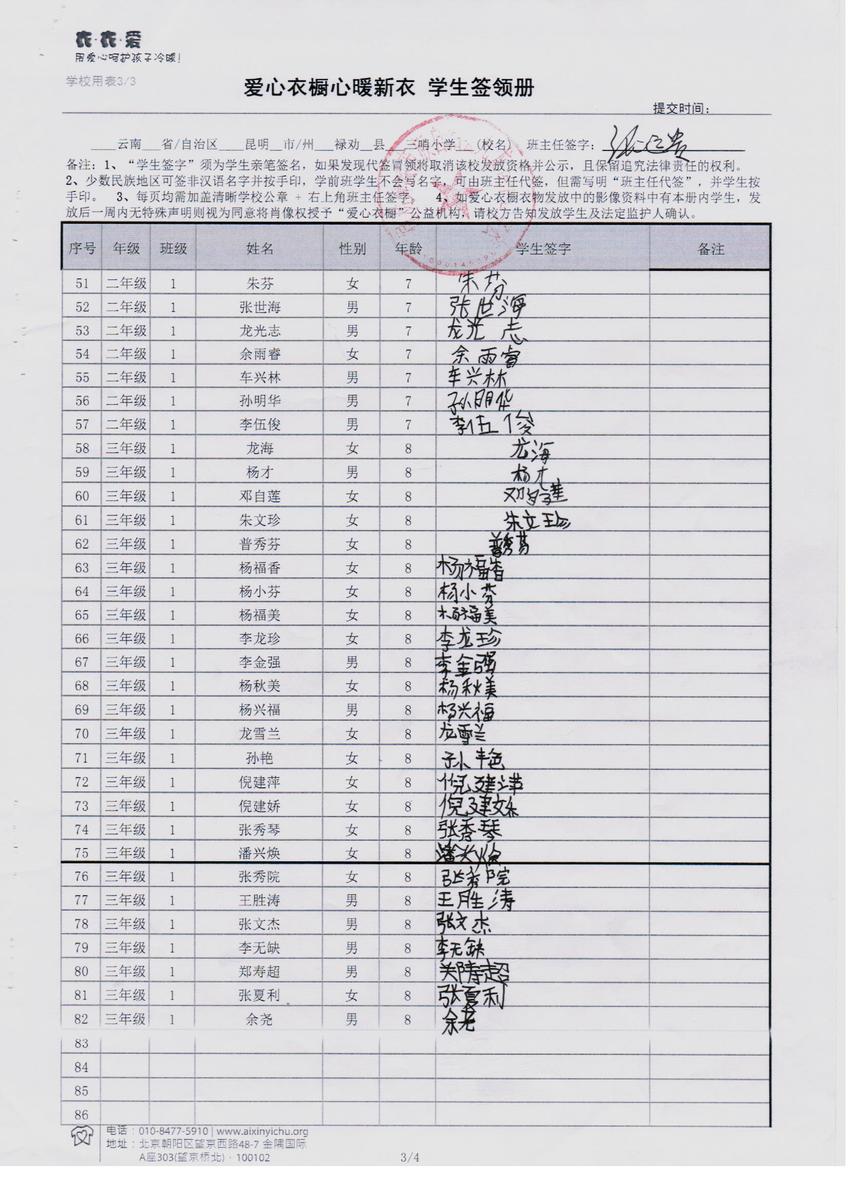 衣·衣·爱
用爱心呵护孩子冷暖!
学校用表3/3
爱心衣橱心暖新衣 学生签领册
提交时间:
云南 省/自治区 昆明 市/州 禄劝 县 三哨小学 (校名) 班主任签字:
备注:1、“学生签字”须为学生亲笔签名,如果发现代签冒领将取消该校发放资格并公示,且保留追究法律责任的权利。
2、少数民族地区可签非汉语名字并按手印,学前班学生不会写名字,可由班主任代签,但需写明“班主任代签”,并学生按
手印。 3、每页均需加盖清晰学校公章 + 右上角班主任签字 4、如爱心衣橱衣物发放中的影像资料中有本册内学生,发
放后一周内无特殊声明则视为同意将肖像权授予“爱心衣橱”公益机构,请校方告知发放学生及法定监护人确认。
序号 年级 班级 姓名 性别 年龄 学生签字 备注
51 二年级 1 朱芬 女 7 朱芬
52 二年级 1 张世海 男 7 张世海
53 二年级 1 龙光志 男 7 龙光志
54 二年级 1 余雨睿 女 7 余雨睿
55 二年级 1 车兴林 男 7 车兴林
56 二年级 1 孙明华 男 7 孙明华
57 二年级 1 李伍俊 男 7 李伍俊
58 三年级 1 龙海 女 8 龙海
59 三年级 1 杨才 男 8 杨才
60 三年级 1 邓自莲 女 8 邓自莲
61 三年级 1 朱文珍 女 8 朱文珍
62 三年级 1 普秀芬 女 8 普秀芬
63 三年级 1 杨福香 女 8 杨福香
64 三年级 1 杨小芬 女 8 杨小芬
65 三年级 1 杨福美 女 8 杨福美
66 三年级 1 李龙珍 女 8 李龙珍
67 三年级 1 李金强 男 8 李金强
68 三年级 1 杨秋美 女 8 杨秋美
69 三年级 1 杨兴福 男 8 杨兴福
70 三年级 1 龙雪兰 女 8 龙雪兰
71 三年级 1 孙艳 女 8 孙艳
72 三年级 1 倪建萍 女 8 倪建萍
73 三年级 1 倪建娇 女 8 倪建娇
74 三年级 1 张秀琴 女 8 张秀琴
75 三年级 1 潘兴焕 女 8 潘兴焕
76 三年级 1 张秀院 女 8 张秀院
77 三年级 1 王胜涛 男 8 王胜涛
78 三年级 1 张文杰 男 8 张文杰
79 三年级 1 李无缺 男 8 李无缺
80 三年级 1 郑寿超 男 8
81 三年级 1 张夏利 女 8 张夏利
82 三年级 1 余尧 男 8 余尧
83
84
85
86
电话:010-8477-5910 | www.aixinyichu.org
地址:北京朝阳区望京西路48-7 金隅国际
A座303(望京桥北)·100102
3/4